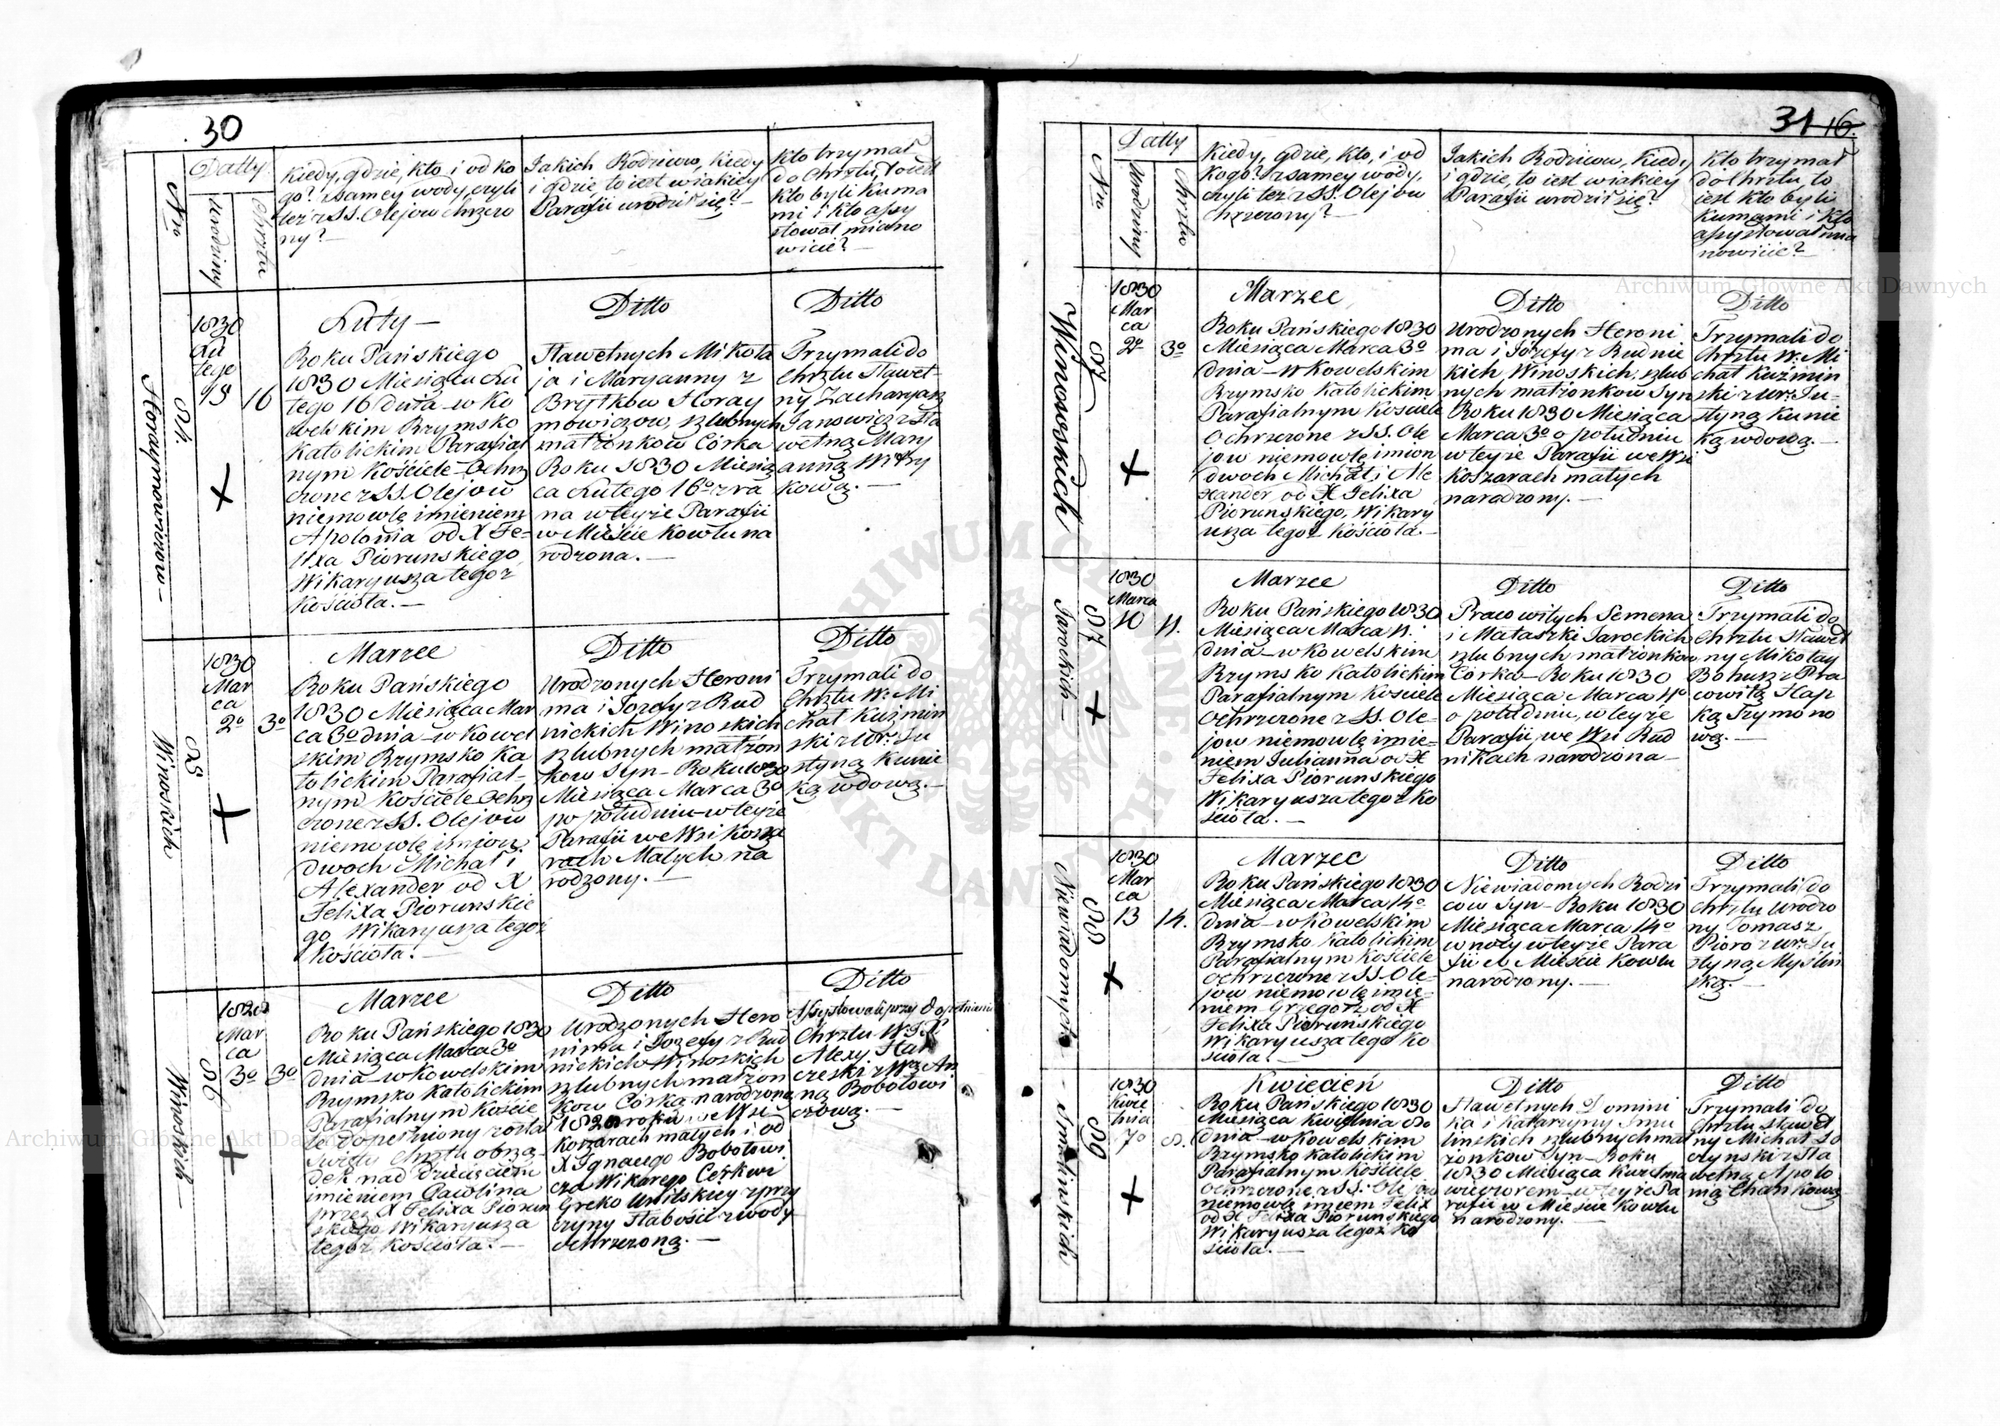 30
Nro
Datty
Urodziny
Chrztu
Kiedy, gdzie, kto, i od ko
go? z samey wody, czyli
też z SS. Olejow chrzczo
ny?
Jakich Rodzicow, kiedy
i gdzie, to iest w iakiey
Parafii urodził się?
Kto trzymał
do Chrztu, to iest
kto byli kuma
mi i kto assy
stował miano
wicie?
84.
Horaymowiczow
1830
Lu
tego
15
16
Luty
Roku Pańskiego
1830 Miesiąca Lu
tego 16 dnia w Ko
welskim Rzymsko
Katolickim Parafial
nym Kościele Ochrz
czone z SS. Olejow
niemowlę imieniem
Apolonia od X Fe-
lixa Piorunskiego,
Wikaryusza tegoż
Kościoła.
Ditto
Sławetnych Mikoła
ja i Maryanny z
Brytkow Horay
mowiczow, szlubnych
małżonkow Corka
Roku 1830 Miesią
ca Lutego 16o z ra
na w teyże Parafii
w Mieście Kowlu na
rodzona.
Ditto
Trzymali do
Chrztu Sławet
ny Zacharyasz
Janowicz z Sła
wetną Mary
anną Witry
kową.
85
Winoskich
1830
Mar
ca
2o
3o
Marzec
Roku Pańskiego
1830 Miesiąca Mar
ca 3o dnia w Kowel
skim Rzymsko Ka
tolickim Parafial-
nym Kościele Ochrz
czone z SS. Olejow
niemowlę imion
dwoch Michał i
Alexander od X
Felixa Piorunskie
go Wikaryusza tegoż
Kościoła.
Ditto
Urodzonych Heroni
ma i Jozefy z Rud
nickich Winoskich
szlubnych małżon
kow Syn Roku 1830
Miesiąca Marca 3o
po południu w teyże
Parafii we Wsi Kosza
rach Małych na
rodzony.
Ditto
Trzymali do
Chrztu W. Mi
chał Kuźmin
ski z Ur. Ju
styną Kunic
ką wdową.
86
Winoskich
Mar
ca
3o
3o
Marzec
Roku Pańskiego 1830
Miesiąca Marca 3o
dnia w Kowelskim
Rzymsko Katolickim
Parafialnym Koście
le dopełniony został
Święty Chrztu obrzą-
dek nad Dziecięciem
imieniem Pawlina
przez X Felixa Piorun
skiego Wikaryusza
tegoż Kościoła.
Ditto
Urodzonych Hero
nima i Jozefy z Rud
nickich Winoskich
szlubnych małżon
kow Corka narodzona
roku we Wsi
Koszarach małych i od
X Ignacego Bobołowi
cza Wikarego Cerkwi
Greko Unitskiey z przy
czyny słabości z wody
ochrzczona.
Ditto
Assystowali przy dopełnieniu
Chrztu W. J. P.
Alexy
z W. An
ną Bobołowi
czową.
31 16.
Nro
Datty
Urodziny
Chrztu
Kiedy, gdzie, kto, i od
kogo? z samey wody,
czyli też z SS. Olejow
chrzczony?
Jakich Rodzicow, kiedy
i gdzie, to iest w iakiey
Parafii urodził się?
Kto trzymał
do Chrztu to
iest kto byli
kumami i kto
assystował mia
nowicie?
Winoskich
1830
Mar
ca
2o
3o
Marzec
Roku Pańskiego 1830
Miesiąca Marca 3o
dnia w Kowelskim
Rzymsko Katolickim
Parafialnym Kościele
Ochrzczone z SS. Ole
jow niemowlę imion
dwoch Michał i Ale
xander od X Felixa
Piorunskiego, Wikary
usza tegoż Kościoła.
Ditto
Urodzonych Heroni
ma i Józefy z Rudnic
kich Winoskich, szlub
nych małżonkow Syn
Roku 1830 Miesiąca
Marca 3o o południu
w teyże Parafii we Wsi
Koszarach małych
narodzony.
Ditto
Trzymali do
Chrztu W. Mi
chał Kuźmin
ski z Ur. Ju-
styną Kunic
ką wdową.
87
Jarockich
1830
Marca
10
11.
Marzec
Roku Pańskiego 1830
Miesiąca Marca 11.
dnia w Kowelskim
Rzymsko Katolickim
Parafialnym Kościele
Ochrzczone z SS. Ole-
jow niemowlę imie-
niem Julianna od X
Felixa Piorunskiego
Wikaryusza tegoż Ko
ścioła.
Ditto
Pracowitych Semena
i Mataszki Jarockich
szlubnych małżonkow
Corka Roku 1830
Miesiąca Marca
o południu, w teyże
Parafii we Wsi Rud
nikach narodzona
Ditto
Trzymali do
Chrztu Sławet
ny Mikołay
Bohusz z Pra
cowitą Hap
ką Tzymono
wą.
88
Niewiadomych
1830
Mar
ca
13
14.
Marzec
Roku Pańskiego 1830
Miesiąca Marca 14o
dnia w Kowelskim
Rzymsko Katolickim
Parafialnym Kościele
Ochrzczone z SS. Ole-
jow niemowlę imie-
niem Grzegorz od X
Felixa Piorunskiego
Wikaryusza tegoż Ko
ścioła.
Ditto
Niewiadomych Rodzi
cow Syn Roku 1830
Miesiąca Marca 14o
w nocy w teyże Para
fii w Mieście Kowlu
narodzony.
Ditto
Trzymali do
chrztu Urodzo
ny Tomasz
Pioro z Ur. Ju
styną Myślin
ską.
89
Smolinskich
1830
Kwie
tnia
7o
8.
Kwiecień
Roku Pańskiego 1830
Miesiąca Kwietnia 8o
dnia w Kowelskim
Rzymsko Katolickim
Parafialnym Kościele
Ochrzczone z SS. Olejow
niemowlę imiem Felix
od X Felixa Piorunskiego
Wikaryusza tegoż Ko
ścioła.
Ditto
Sławetnych Domini
ka i Katarzyny Smo
linskich szlubnych mał
żonkow Syn Roku
1830 Miesiąca Kwietnia
wieczorem w teyże Pa
rafii w Mieście Kowlu
narodzony.
Ditto
Trzymali do
Chrztu sławet
ny Michał So
czynski z Sła
wetną Apolo
nią Chankową
Archiwum Główne Akt Dawnych
Archiwum Główne Akt Dawnych
ARCHIWUM GŁÓWNE
AKT DAWNYCH